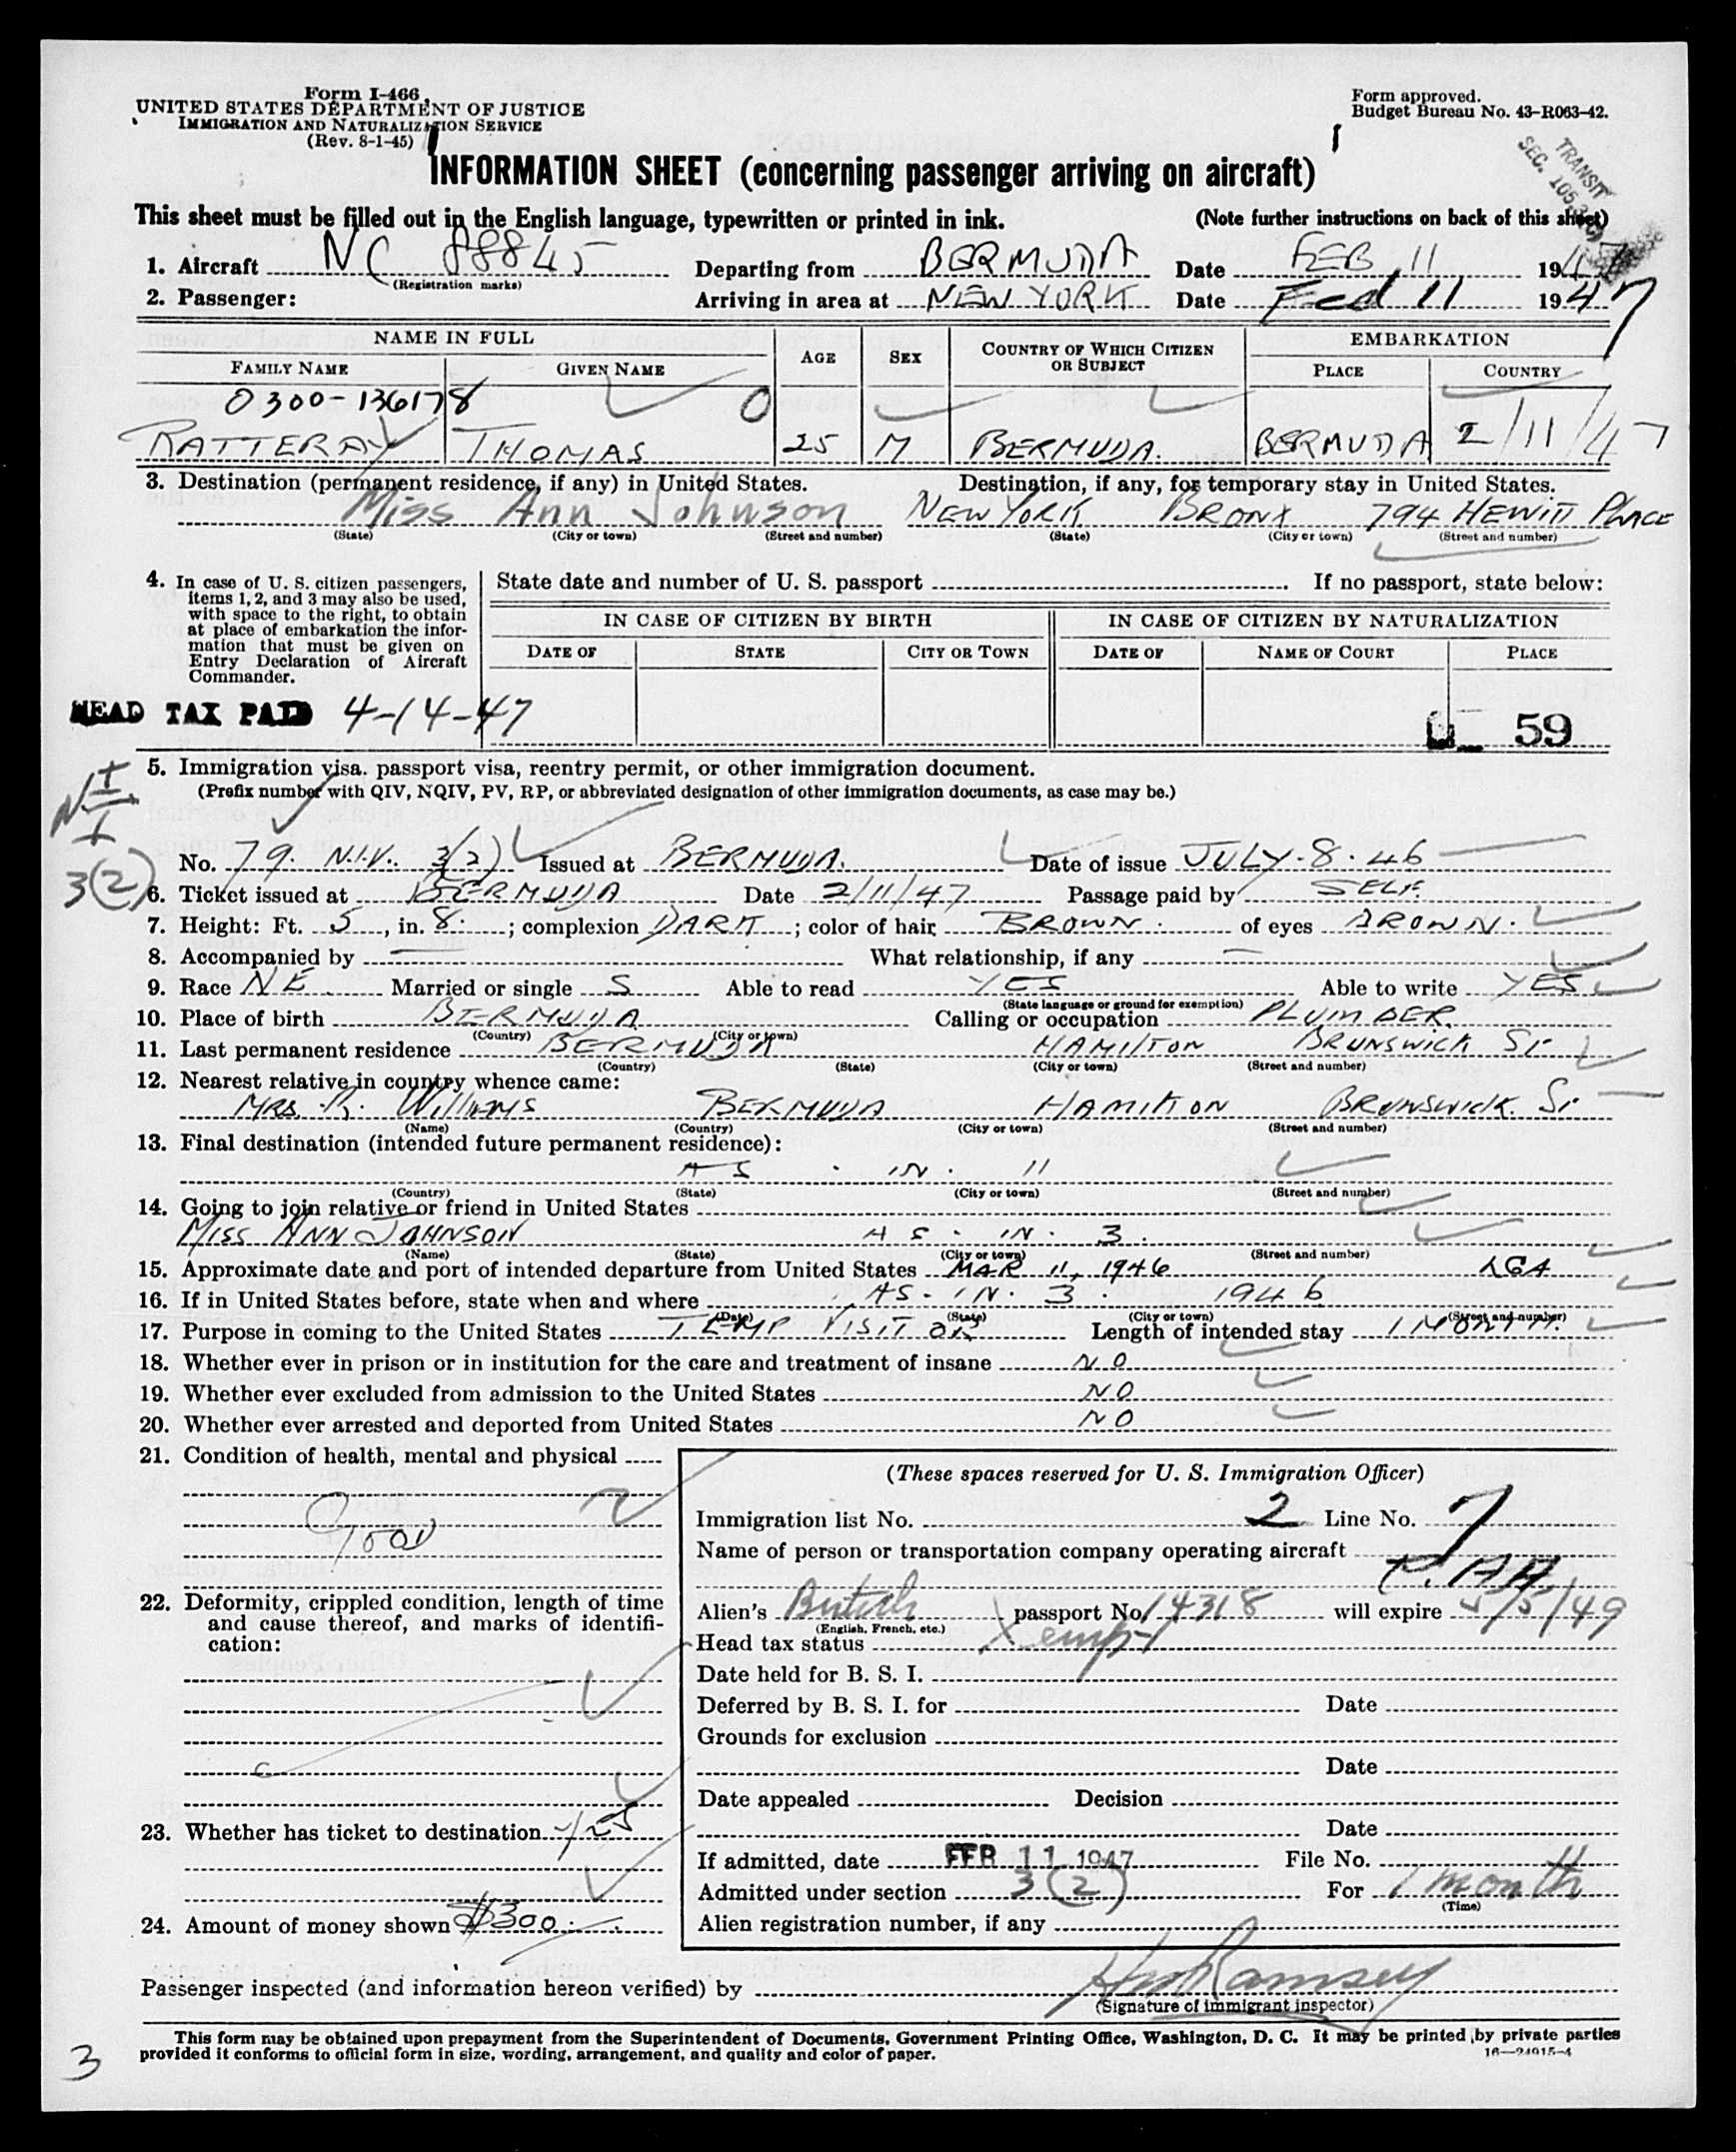 Form I-466
UNITED STATES DEPARTMENT OF JUSTICE
IMMIGRATION AND NATURALIZATION SERVICE
(Rev. 8-1-45)
Form approved.
Budget Bureau No. 43-R063-42.
TRANSIT
SEC. 105.3(c)
INFORMATION SHEET (concerning passenger arriving on aircraft)
This sheet must be filled out in the English language, typewritten or printed in ink. (Note further instructions on back of this sheet)
1. Aircraft NC 88845 Departing from BERMUDA Date FEB 11 1947
(Registration marks)
2. Passenger: Arriving in area at NEW YORK Date Feb 11 1947
NAME IN FULL AGE SEX COUNTRY OF WHICH CITIZEN OR SUBJECT EMBARKATION
FAMILY NAME GIVEN NAME PLACE COUNTRY
0300-136178 0
RATTERAY THOMAS 25 M BERMUDA. BERMUDA 2/11/47
3. Destination (permanent residence, if any) in United States. Destination, if any, for temporary stay in United States.
Miss Ann Johnson NEW YORK BRONX 794 HEWITT PLACE
(State) (City or town) (Street and number) (State) (City or town) (Street and number)
4. In case of U. S. citizen passengers, items 1, 2, and 3 may also be used, with space to the right, to obtain at place of embarkation the information that must be given on Entry Declaration of Aircraft Commander.
State date and number of U. S. passport If no passport, state below:
IN CASE OF CITIZEN BY BIRTH IN CASE OF CITIZEN BY NATURALIZATION
DATE OF STATE CITY OR TOWN DATE OF NAME OF COURT PLACE
HEAD TAX PAID 4-14-47
59
5. Immigration visa, passport visa, reentry permit, or other immigration document.
(Prefix number with QIV, NQIV, PV, RP, or abbreviated designation of other immigration documents, as case may be.)
No. 79. N.I.V. 3(2) Issued at BERMUDA. Date of issue JULY. 8. 46
3(2)
6. Ticket issued at BERMUDA Date 2/11/47 Passage paid by SELF.
7. Height: Ft. 5, in. 8.; complexion DARK; color of hair BROWN. of eyes BROWN.
8. Accompanied by — What relationship, if any —
9. Race NE. Married or single S Able to read YES Able to write YES
(State language or ground for exemption)
10. Place of birth BERMUDA Calling or occupation PLUMBER.
(Country) (City or town)
11. Last permanent residence BERMUDA HAMILTON BRUNSWICK ST
(Country) (State) (City or town) (Street and number)
12. Nearest relative in country whence came:
MRS. R. WILLIAMS BERMUDA HAMILTON BRUNSWICK. ST
(Name) (Country) (City or town) (Street and number)
13. Final destination (intended future permanent residence):
AS . IN . 11
(Country) (State) (City or town) (Street and number)
14. Going to join relative or friend in United States
MISS ANN JOHNSON AS . IN . 3.
(Name) (State) (City or town) (Street and number)
15. Approximate date and port of intended departure from United States MAR 11, 1946 LGA
16. If in United States before, state when and where AS. IN. 3. 1946
(Date) (State) (City or town) (Street and number)
17. Purpose in coming to the United States TEMP VISITOR Length of intended stay 1 MONTH.
18. Whether ever in prison or in institution for the care and treatment of insane NO
19. Whether ever excluded from admission to the United States NO
20. Whether ever arrested and deported from United States NO
21. Condition of health, mental and physical
GOOD
22. Deformity, crippled condition, length of time and cause thereof, and marks of identification:
23. Whether has ticket to destination YES
24. Amount of money shown $300.
(These spaces reserved for U. S. Immigration Officer)
Immigration list No. 2 Line No. 7
Name of person or transportation company operating aircraft
P.AA
Alien's British passport No. 14318 will expire 5/5/49
(English, French, etc.)
Head tax status Xempt
Date held for B. S. I.
Deferred by B. S. I. for Date
Grounds for exclusion
Date
Date appealed Decision
Date
If admitted, date FEB 11 1947 File No.
Admitted under section 3(2) For 1 month
(Time)
Alien registration number, if any
Passenger inspected (and information hereon verified) by Ramsey
(Signature of immigrant inspector)
This form may be obtained upon prepayment from the Superintendent of Documents, Government Printing Office, Washington, D. C. It may be printed by private parties
provided it conforms to official form in size, wording, arrangement, and quality and color of paper. 16—24915-4
3